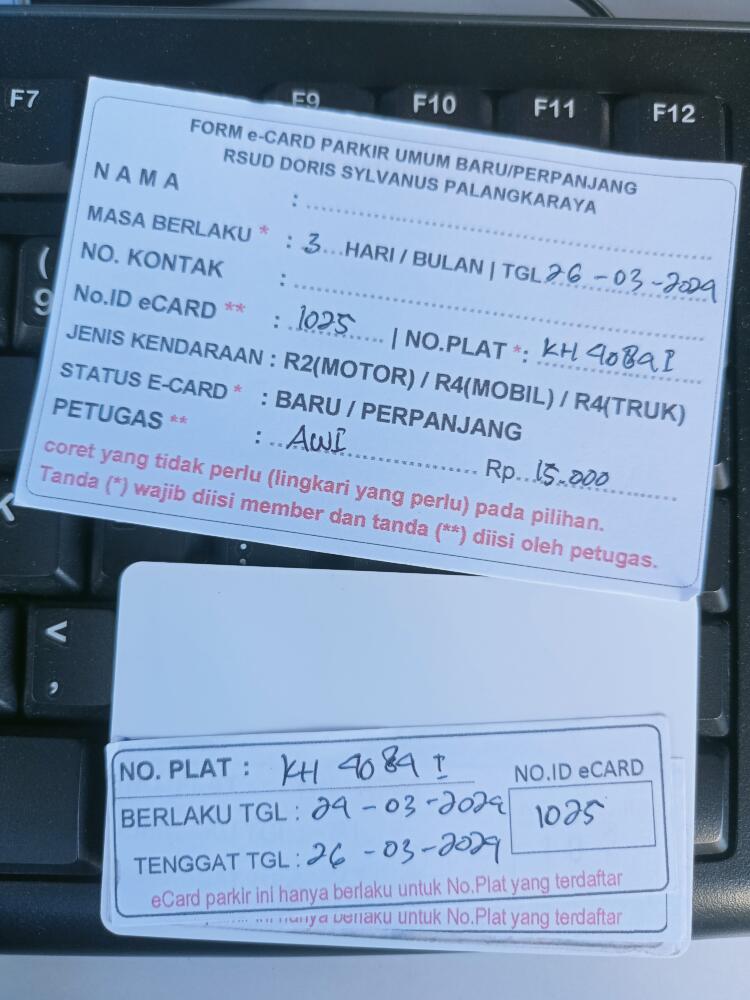 F7 F9 F10 F11 F12
FORM e-CARD PARKIR UMUM BARU/PERPANJANG
RSUD DORIS SYLVANUS PALANGKARAYA
N A M A :
MASA BERLAKU * : 3 HARI / BULAN | TGL 26 - 03 - 2024
NO. KONTAK :
No.ID eCARD ** : 1025 | NO.PLAT *: KH 4084 I
JENIS KENDARAAN : R2(MOTOR) / R4(MOBIL) / R4(TRUK)
STATUS E-CARD * : BARU / PERPANJANG
PETUGAS ** : AWI Rp. 15.000
coret yang tidak perlu (lingkari yang perlu) pada pilihan.
Tanda (*) wajib diisi member dan tanda (**) diisi oleh petugas.
(
9
K
:
<
,
NO. PLAT : KH 4084 I
NO.ID eCARD
BERLAKU TGL : 24 - 03 - 2024
1025
TENGGAT TGL : 26 - 03 - 2024
eCard parkir ini hanya berlaku untuk No.Plat yang terdaftar
ini hanya berlaku untuk No.Plat yang terdaftar